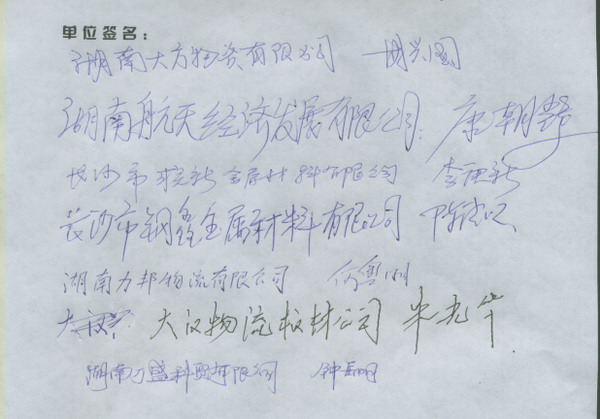 单位签名：
湖南大方物资有限公司
湖南航天经济发展有限公司 康朝
长沙市 金属材料有限公司 李
长沙市钢鑫金属材料有限公司 陈
湖南力邦物流有限公司 何
大汉物流板材公司 朱 华
湖南 盛科贸有限公司 钟 明